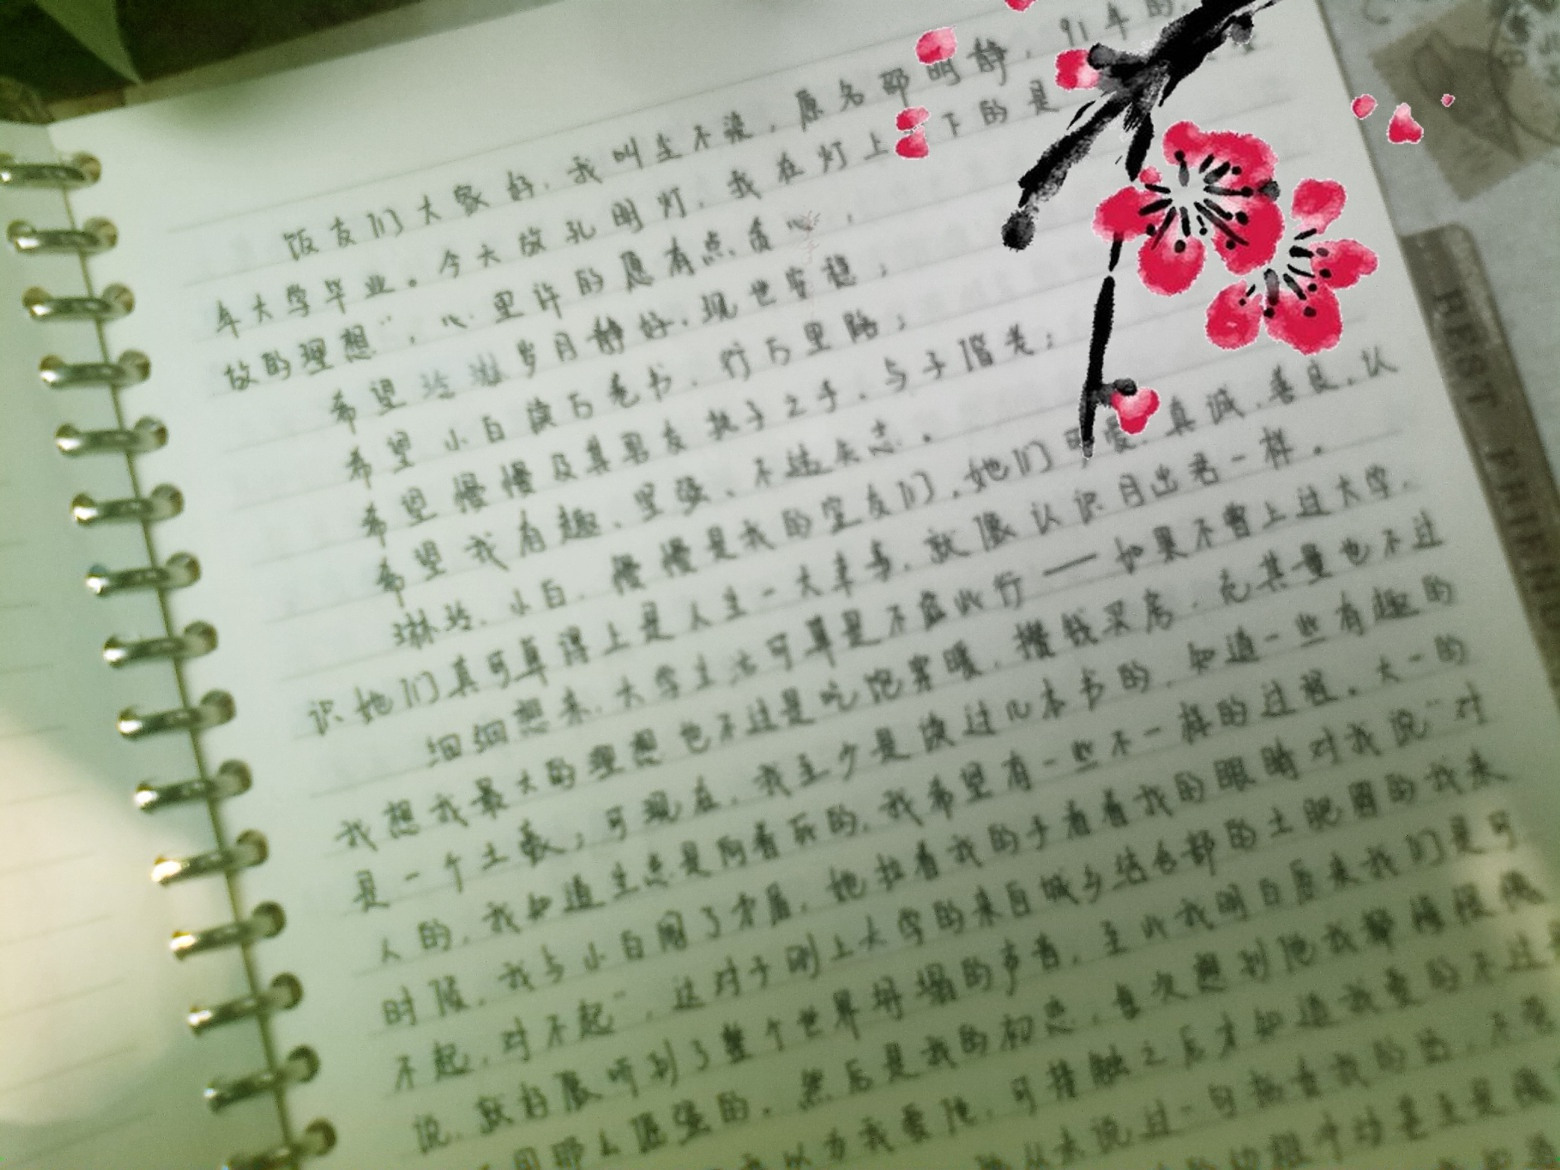 饭友们大家好，我叫生不浪，原名邵明静，91年的
年大学毕业。今天放孔明灯，我在灯上 下的是
做的理想”，心里许的愿有点贪心，
希望玲琳岁月静好，现世安稳；
希望小白读万卷书，行万里路；
希望慢慢及其男友执子之手，与子偕老；
希望我有趣、坚强、不结矢志。
琳玲、小白、慢慢是我的室友们，她们可爱、真诚、善良，认
识她们真可算得上是人生一大幸事，就像认识月出君一样。
细细想来，大学生活可算是不虚此行——如果不曾上过大学，
我想我最大的理想也不过是吃饱穿暖，攒钱买房，充其量也不过
是一个土豪；可现在，我至少是读过几本书的，知道一些有趣的
人的，我知道生总是向着死的，我希望有一些不一样的过程。大一的
时候，我与小白闹了矛盾，她拉着我的手看着我的眼睛对我说“对
不起，对不起”，这对于刚上大学的来自城乡结合部的土肥圆的我来
说，就好像听到了整个世界坍塌的声音，至此我明白原来我们是可
那么倔强的。然后是我的初恋，每次想到他我都 很
以为我爱他，可接触之后才知道我爱的不过
从未说过一句 我的话，不
冲动甚至是